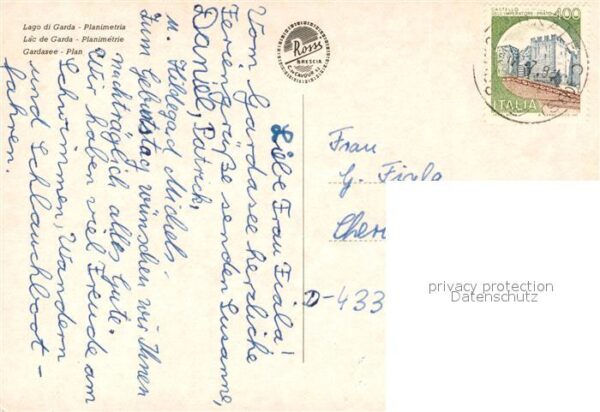 Lago di Garda - Planimetria
Lac de Garda - Planimétrie
Gardasee - Plan
Ross
BRESCIA
CASTELLO
DELL'IMPERATORE - PRATO
400
ITALIA
Liebe Frau Fiala!
Vom Gardasee herzliche
Feriengrüße senden Susanne,
Daniel, Patrick,
u. Hildegad Michels.
Zum Geburtstag wünschen wir Ihnen
nachträglich alles Gute.
Wir haben viel Freude am
Schwimmen, Wandern
und Schlauchboot-
fahren.
Frau
G. Fiala
D-433
privacy protection
Datenschutz